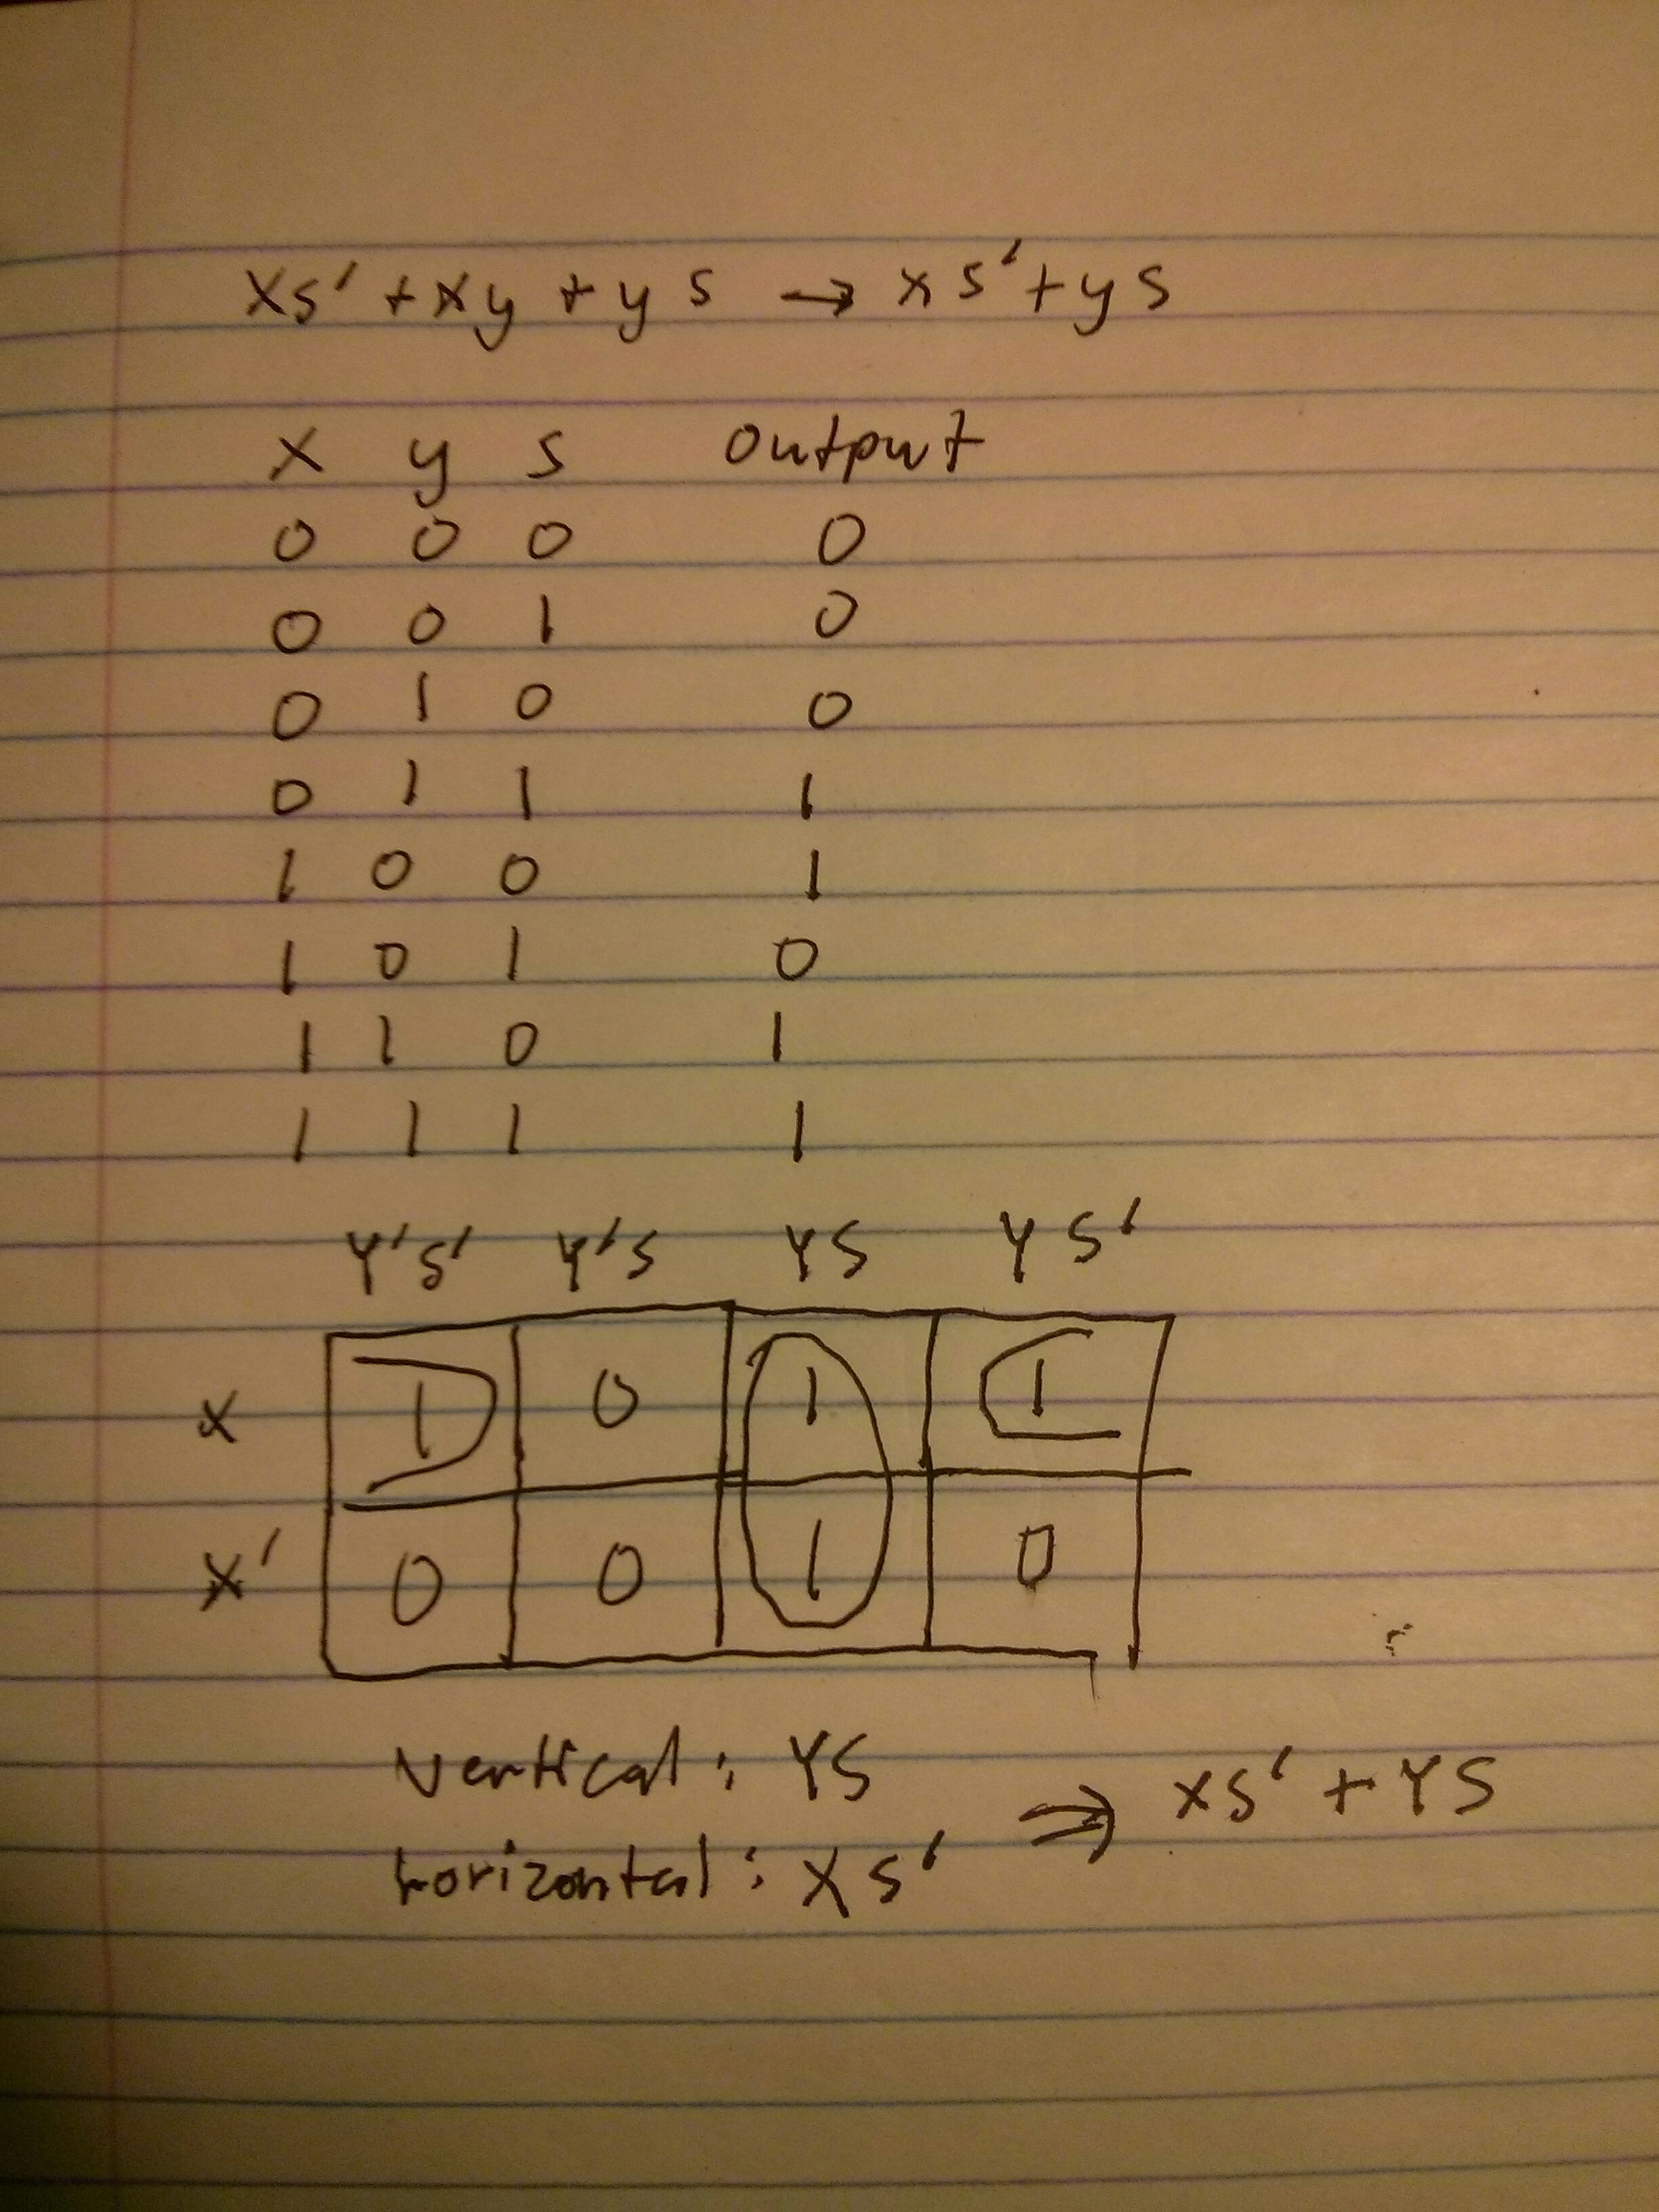 xs' + xy + ys → xs' + ys
x y s output
0 0 0 0
0 0 1 0
0 1 0 0
0 1 1 1
1 0 0 1
1 0 1 0
1 1 0 1
1 1 1 1
Y'S' Y'S YS YS'
x 1 0 1 1
x' 0 0 1 0
vertical: YS
horizontal: XS' ⇒ XS' + YS